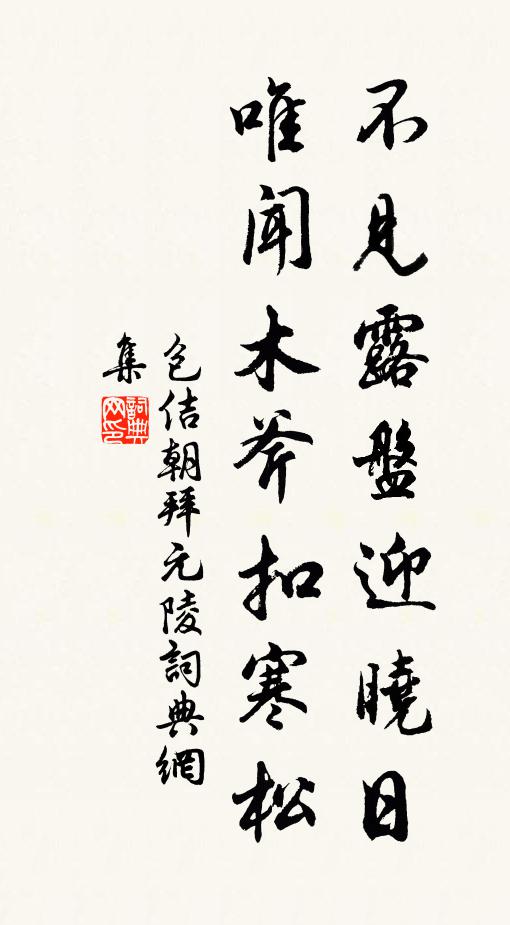 不見露盤迎曉日
唯聞木斧扣寒松
包佶朝拜元陵詞典網
集
詞典網印